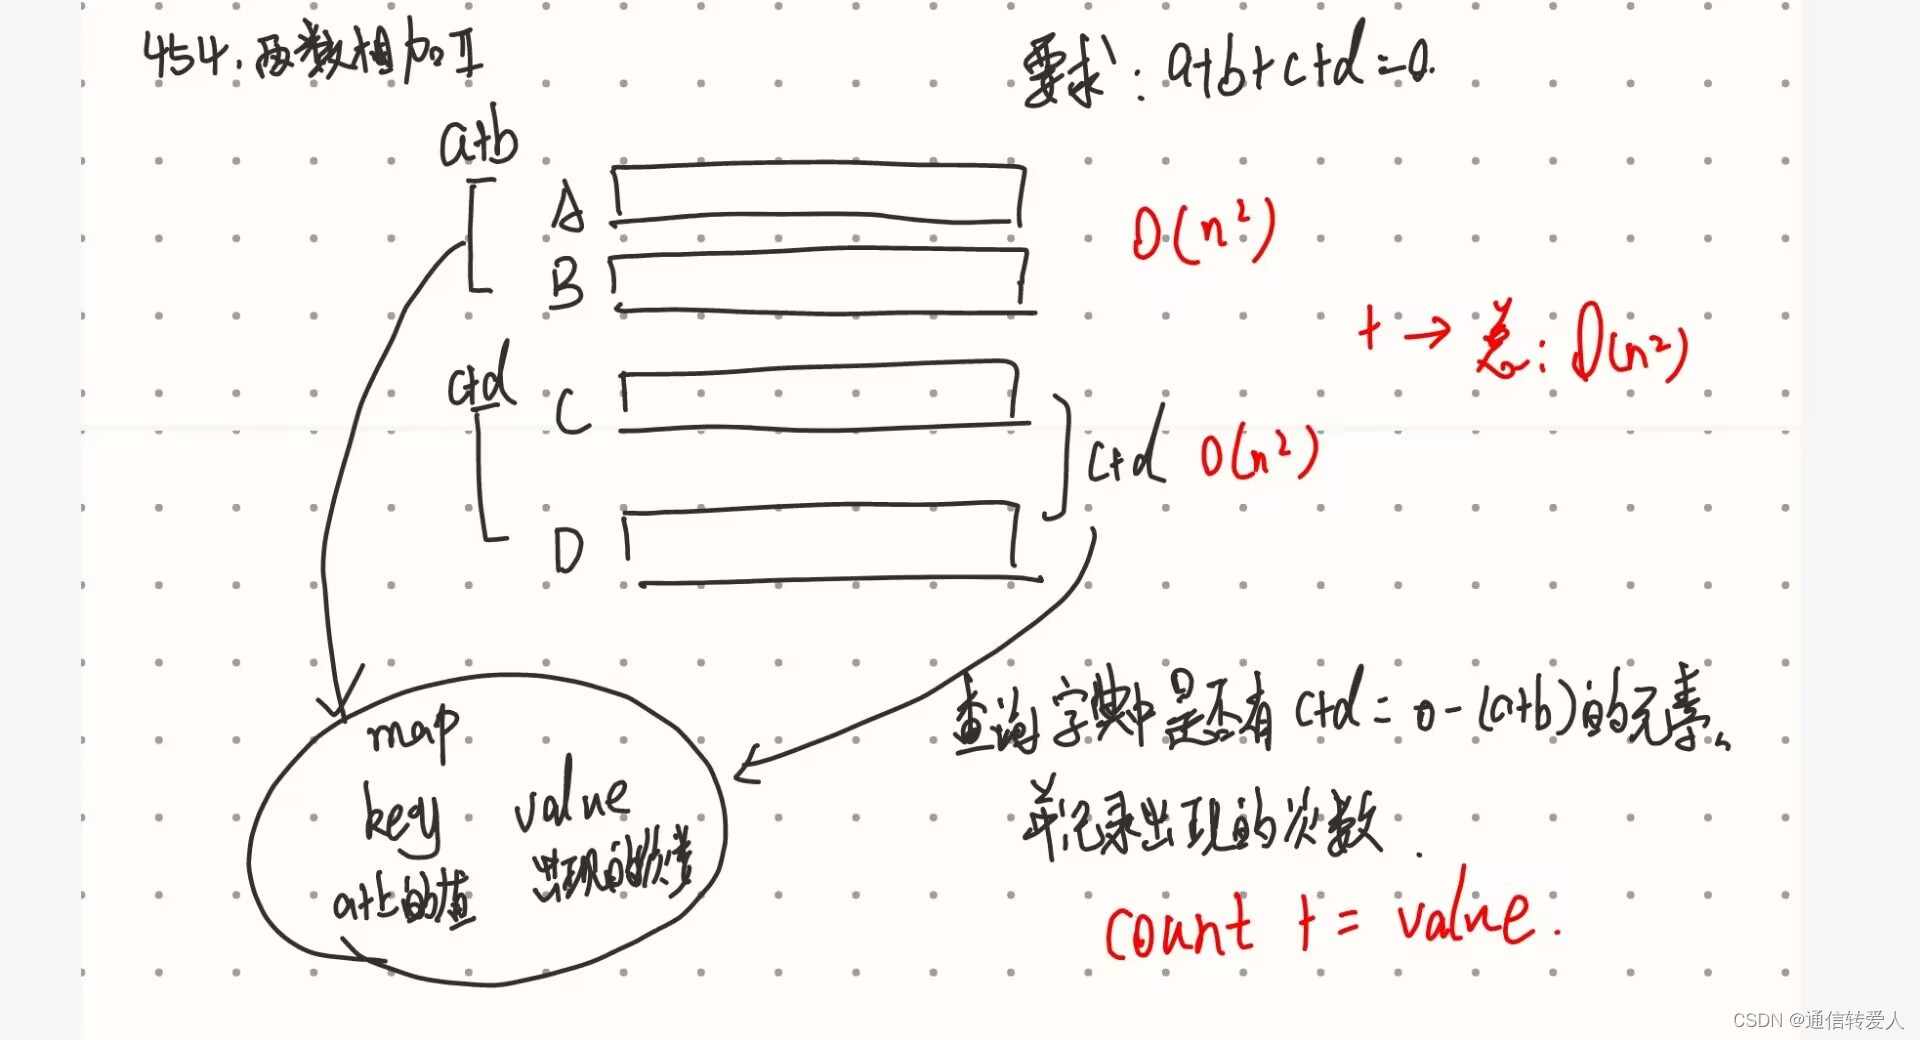 454.两数相加II
要求：a+b+c+d=0.
a+b
A
O(n²)
B
t → 总：O(n²)
c+d
C
c+d O(n²)
D
查询字典中是否有 c+d = 0-(a+b)的元素。
并记录出现的次数.
count += value.
map
key value
a+b的值 出现的次数
CSDN @通信转爱人